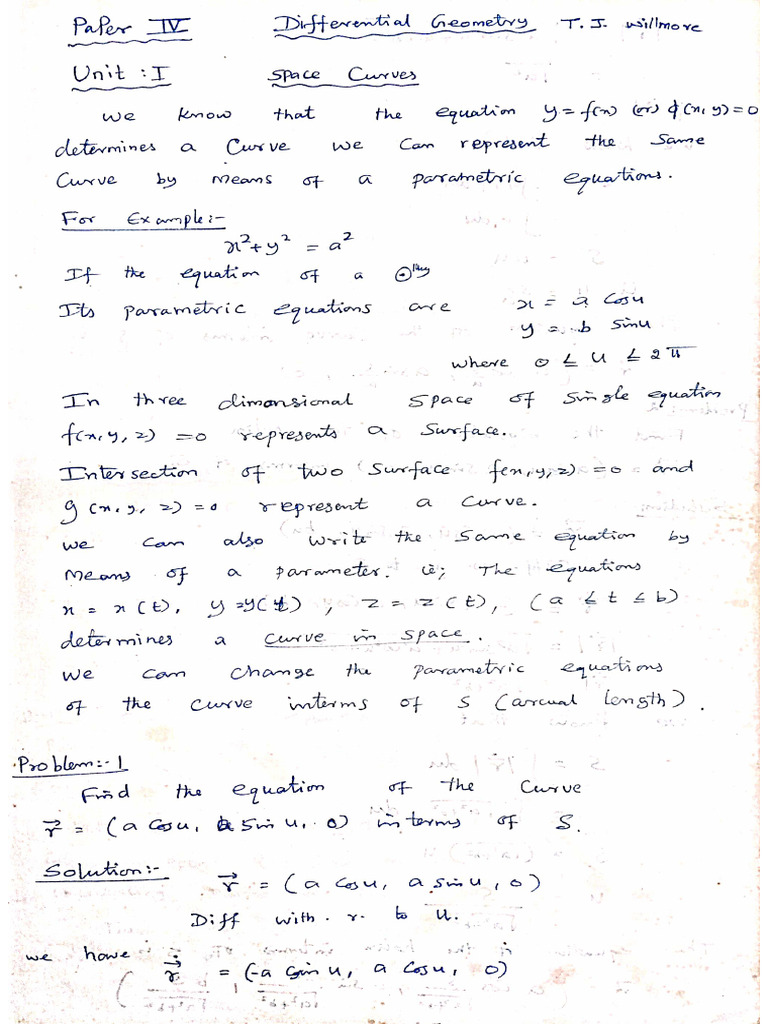 Paper IV Differential Geometry T. J. Willmore
Unit : I Space Curves
We know that the equation y = f(x) (or) φ(x, y) = 0
determines a Curve we Can represent the Same
Curve by means of a parametric equations.
For Example:-
x² + y² = a²
If the equation of a
Its parametric equations are x = a Cosu
y = b Sinu
where 0 ≤ u ≤ 2π
In three dimonsional space of Single equation
f(x, y, z) = 0 represents a Surface.
Intersection of two Surface f(x, y, z) = 0 and
g (x, y, z) = 0 represent a Curve.
We can also write the Same equation by
means of a parameter. ie; The equations
x = x(t), y = y(t), z = z(t), (a ≤ t ≤ b)
determines a curve in space.
We can change the parametric equations
of the curve interms of S (arcual length).
Problem:- 1
Find the equation of the Curve
r⃗ = (a cosu, a Sin u, 0) interms of S.
Solution:-
r⃗ = (a cosu, a sinu, 0)
Diff with. r. to u.
we have ṙ⃗ = (-a Sin u, a Cosu, 0)